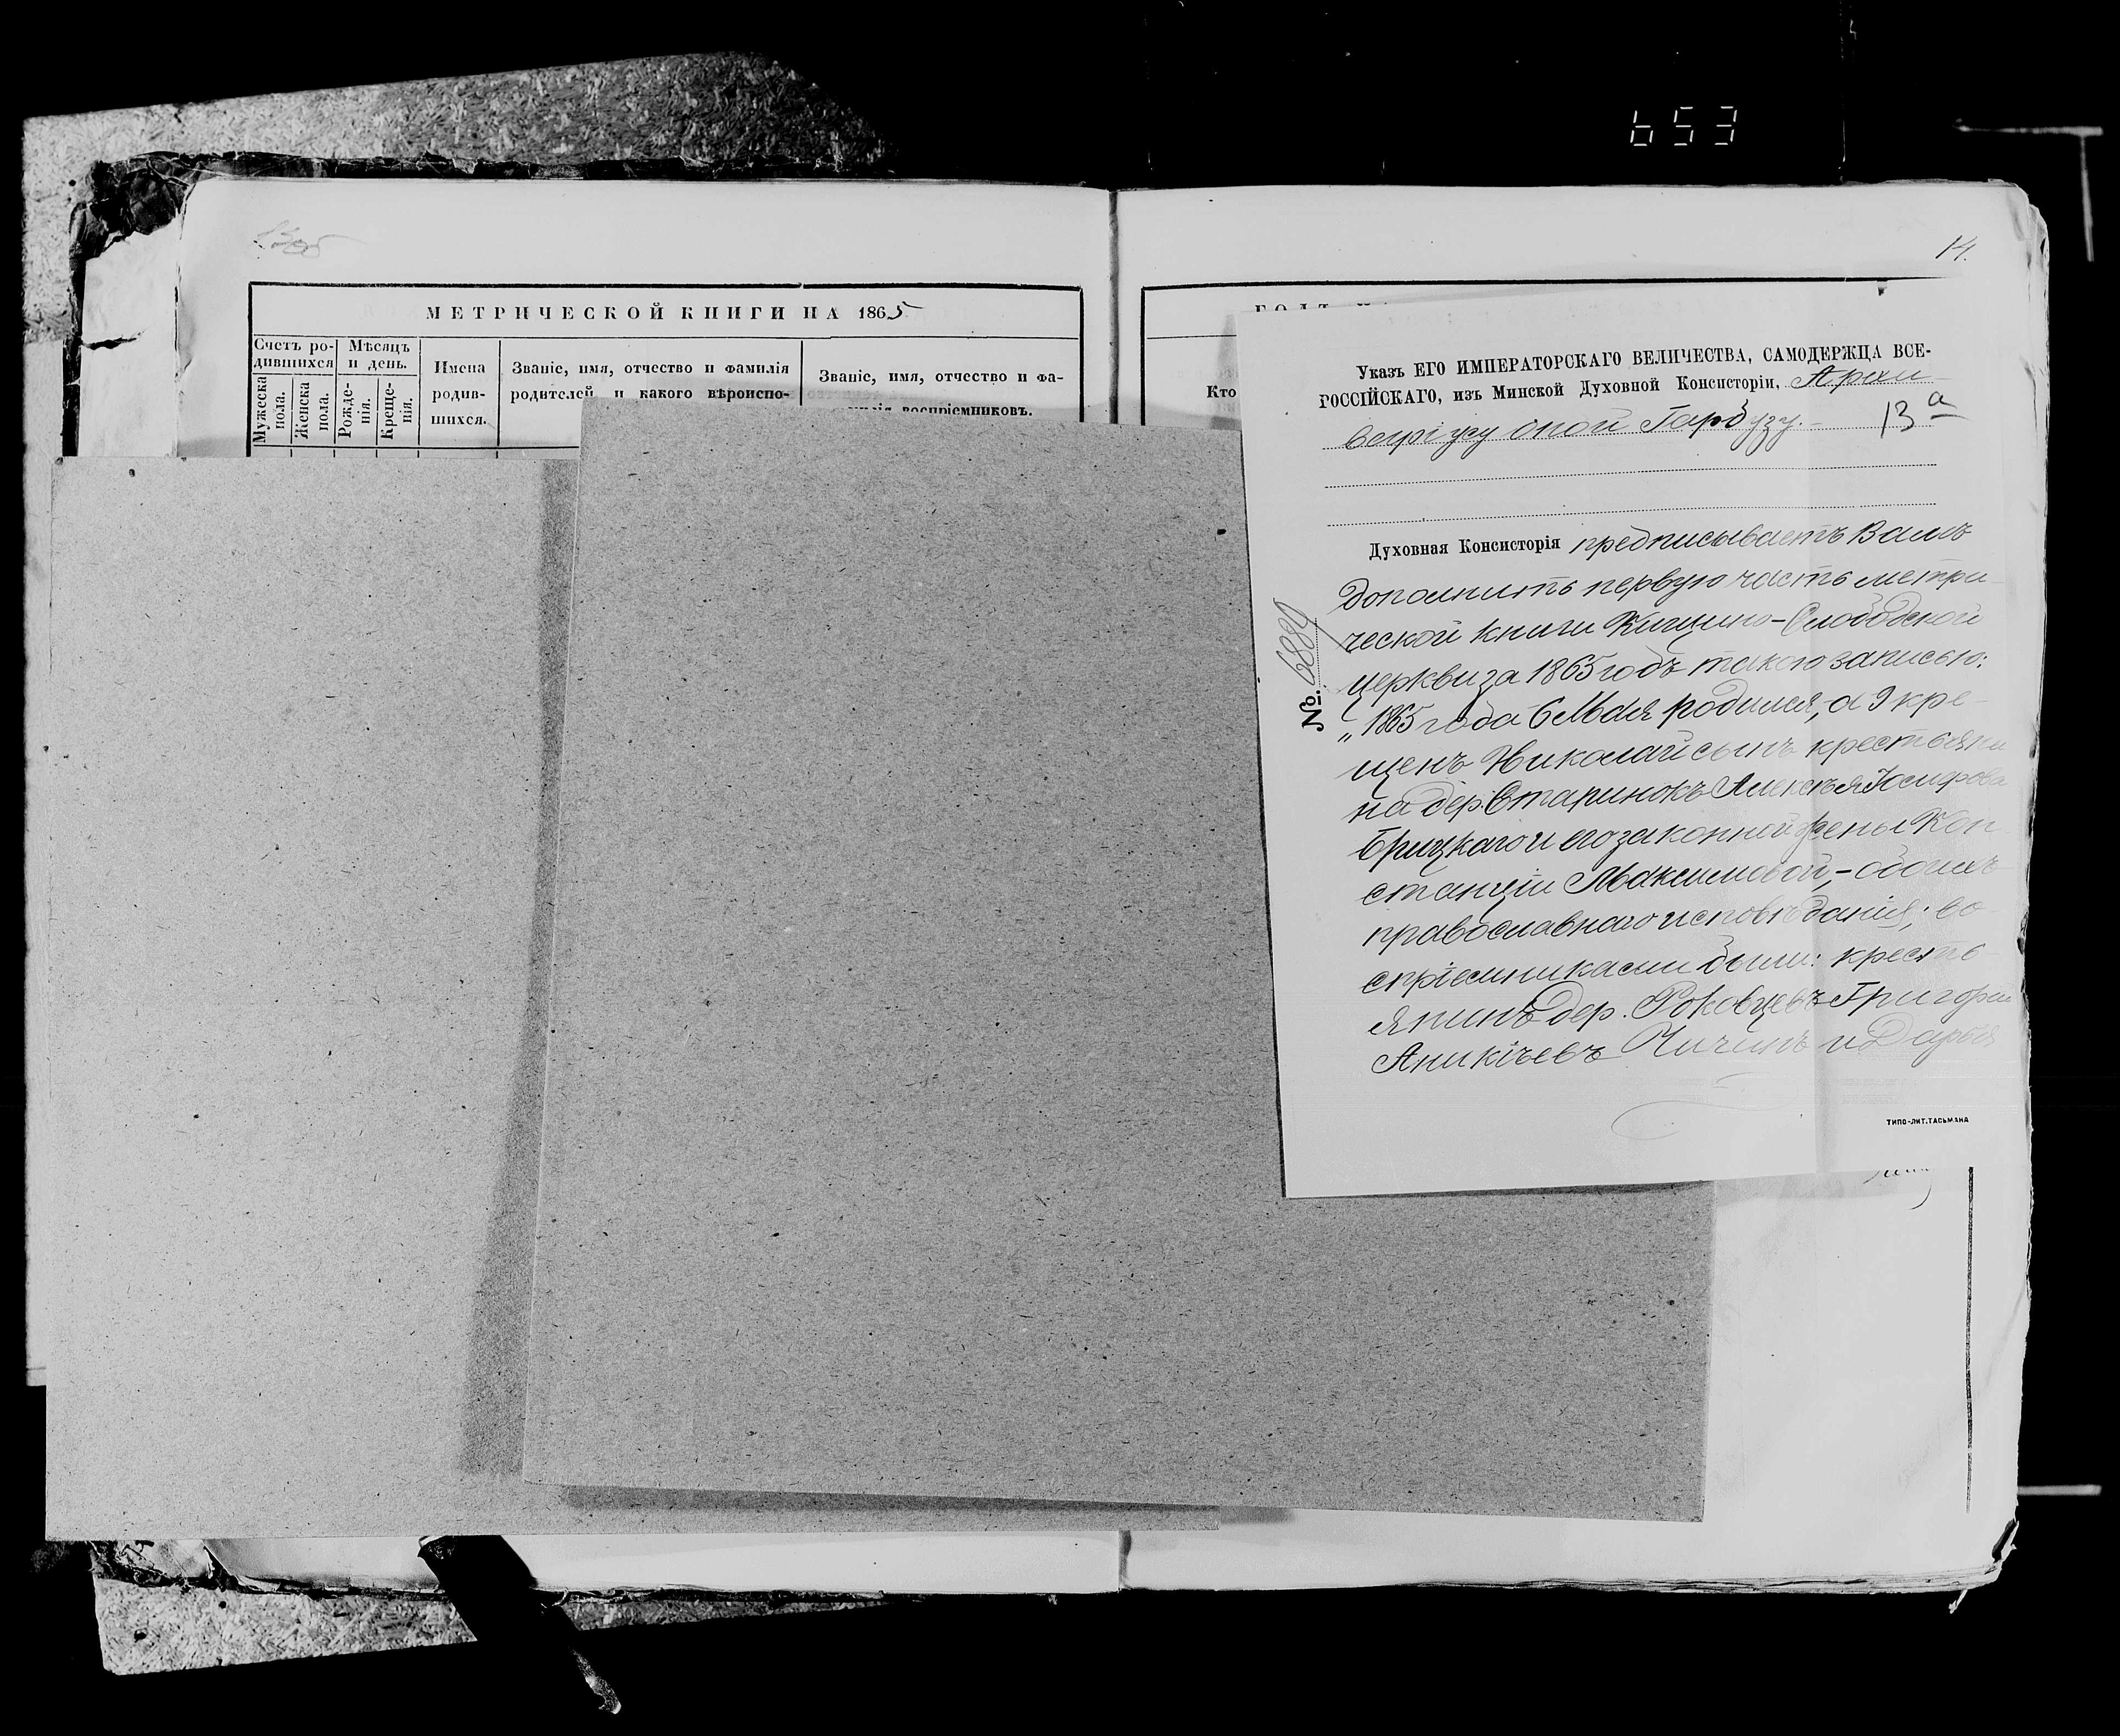 653
14.
МЕТРИЧЕСКОЙ КНИГИ НА 1865
Счетъ ро-
дившихся
Мужеска пола.
Женска пола.
Мѣсяцъ
и день.
Рожде-
нія.
Креще-
нія.
Имена
родив-
шихся.
Званіе, имя, отчество и фамилія
родителей, и какого вѣроиспо-
Званіе, имя, отчество и фа-
воспріемниковъ.
Кто
Указъ ЕГО ИМПЕРАТОРСКАГО ВЕЛИЧЕСТВА, САМОДЕРЖЦА ВСЕ-
РОССІЙСКАГО, изъ Минской Духовной Консисторіи, Архи-
варіусу оной Гарбузу. 13а
№. 6889
Духовная Консисторія предписываетъ Вамъ
дополнить первую часть метри-
ческой книги Кищино-Слободской
церкви за 1865 годъ такою записью:
„1865 года 6 Мая родился, а 9 кре-
щенъ Николай сынъ крестьяни
на дер. Старинокъ Алексѣя Іосифова
Брицкаго и его законной жены Кон
станціи Максимовой, - обоихъ
православнаго исповѣданія; во
спріемниками были: кресть
янинъ дер. Роковцевъ Григорій
Аникіевъ Чичинъ и Дарья
ТИПО-ЛИТ. ТАСЬМАНА